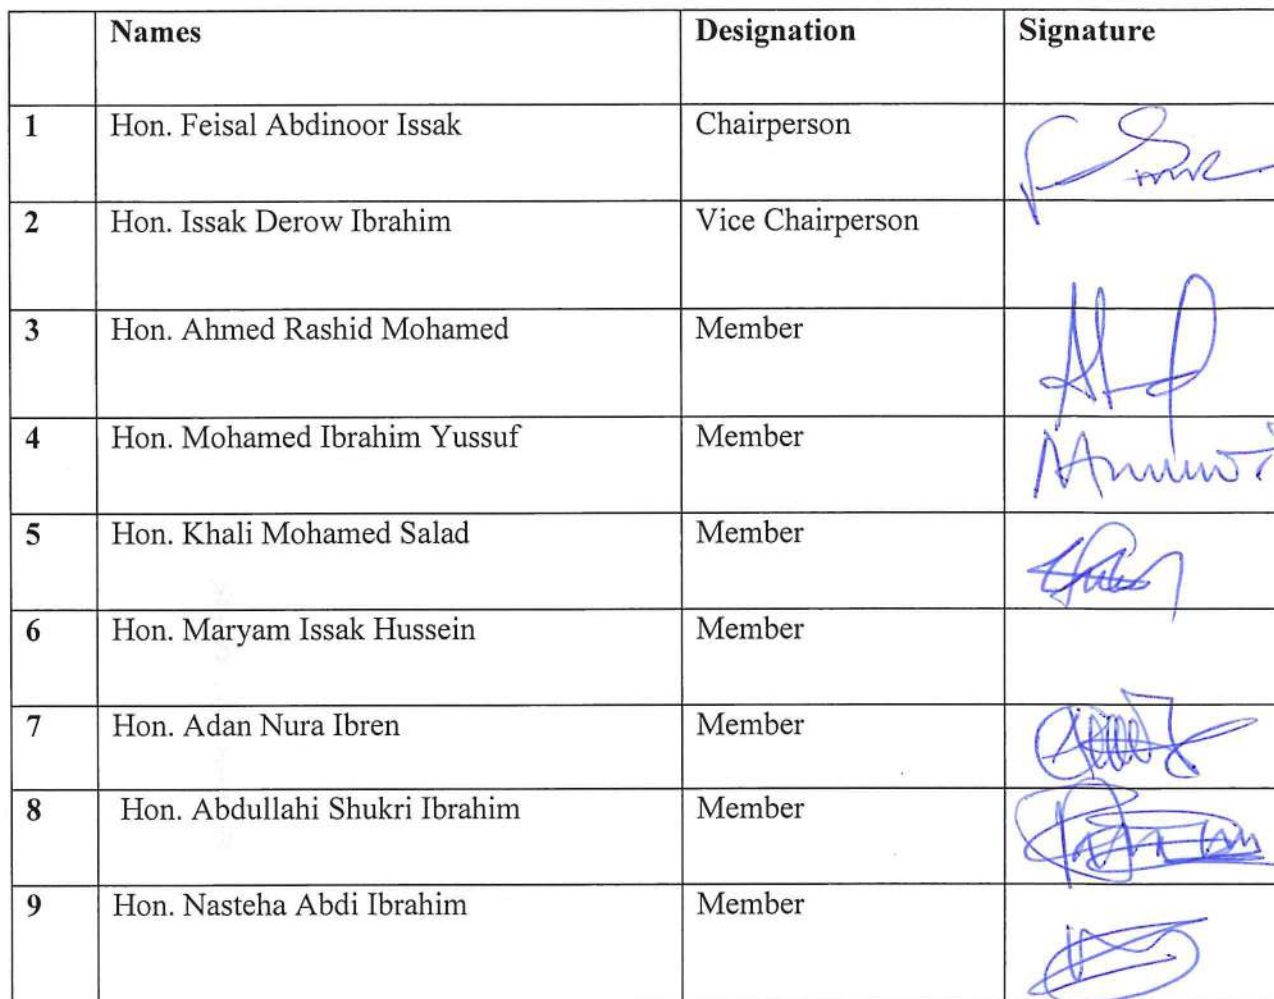 Names Designation Signature
1 Hon. Feisal Abdinoor Issak Chairperson
2 Hon. Issak Derow Ibrahim Vice Chairperson
3 Hon. Ahmed Rashid Mohamed Member
4 Hon. Mohamed Ibrahim Yussuf Member
5 Hon. Khali Mohamed Salad Member
6 Hon. Maryam Issak Hussein Member
7 Hon. Adan Nura Ibren Member
8 Hon. Abdullahi Shukri Ibrahim Member
9 Hon. Nasteha Abdi Ibrahim Member